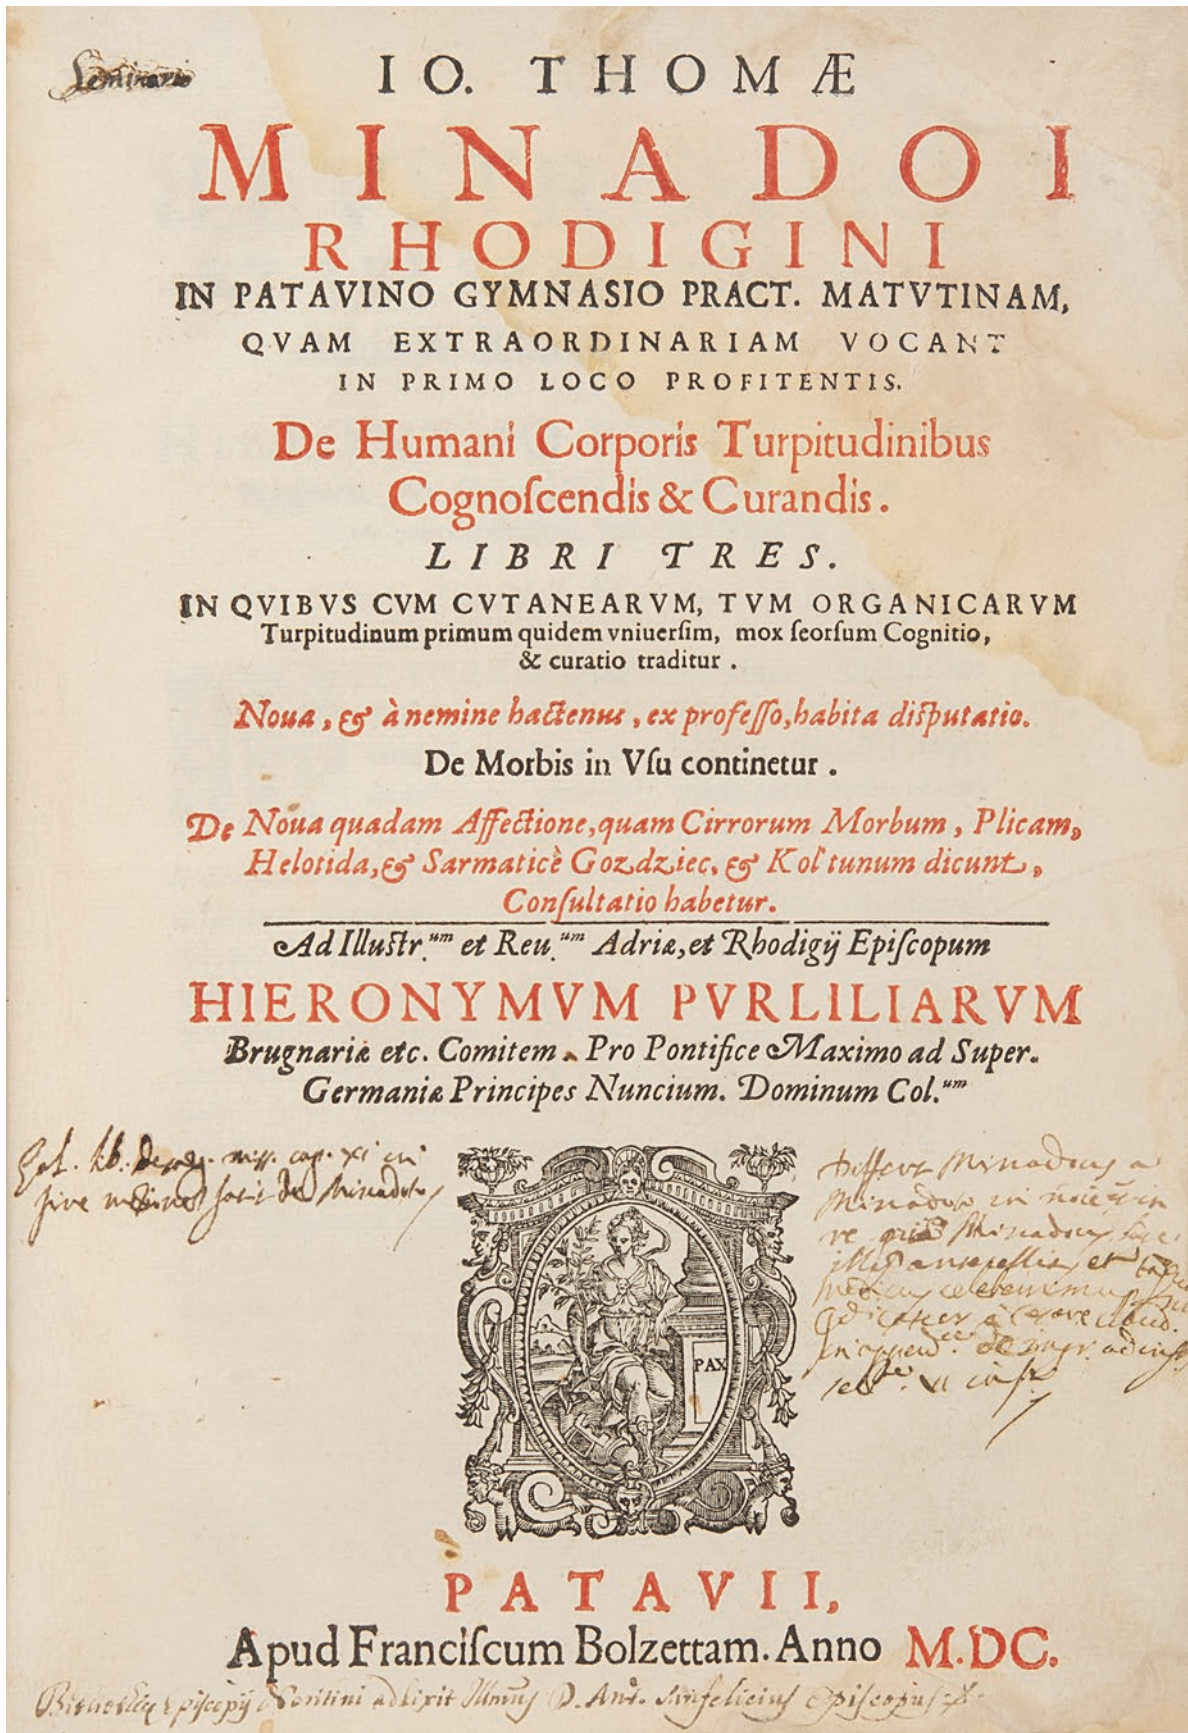 Seminario
IO. THOMÆ
MINADOI
RHODIGINI
IN PATAVINO GYMNASIO PRACT. MATVTINAM,
QVAM EXTRAORDINARIAM VOCANT
IN PRIMO LOCO PROFITENTIS.
De Humani Corporis Turpitudinibus
Cognoſcendis & Curandis.
LIBRI TRES.
IN QVIBVS CVM CVTANEARVM, TVM ORGANICARVM
Turpitudinum primum quidem vniuerſim, mox ſeorſum Cognitio,
& curatio traditur.
Noua, & à nemine hactenus, ex profeſſo, habita diſputatio.
De Morbis in Vſu continetur.
De Noua quadam Affectione, quam Cirrorum Morbum, Plicam,
Helotida, & Sarmaticè Gozdziec, & Koltunum dicunt,
Conſultatio habetur.
Ad Illuſtr.um et Reu.um Adriæ, et Rhodigij Epiſcopum
HIERONYMVM PVRLILIARVM
Brugnariæ etc. Comitem. Pro Pontifice Maximo ad Super.
Germaniæ Principes Nuncium. Dominum Col.um
cap. xi
Minadous a
re Minadous
PAX
PATAVII,
Apud Franciſcum Bolzettam. Anno M.DC.
Episcopij D. Ant. Episcopus